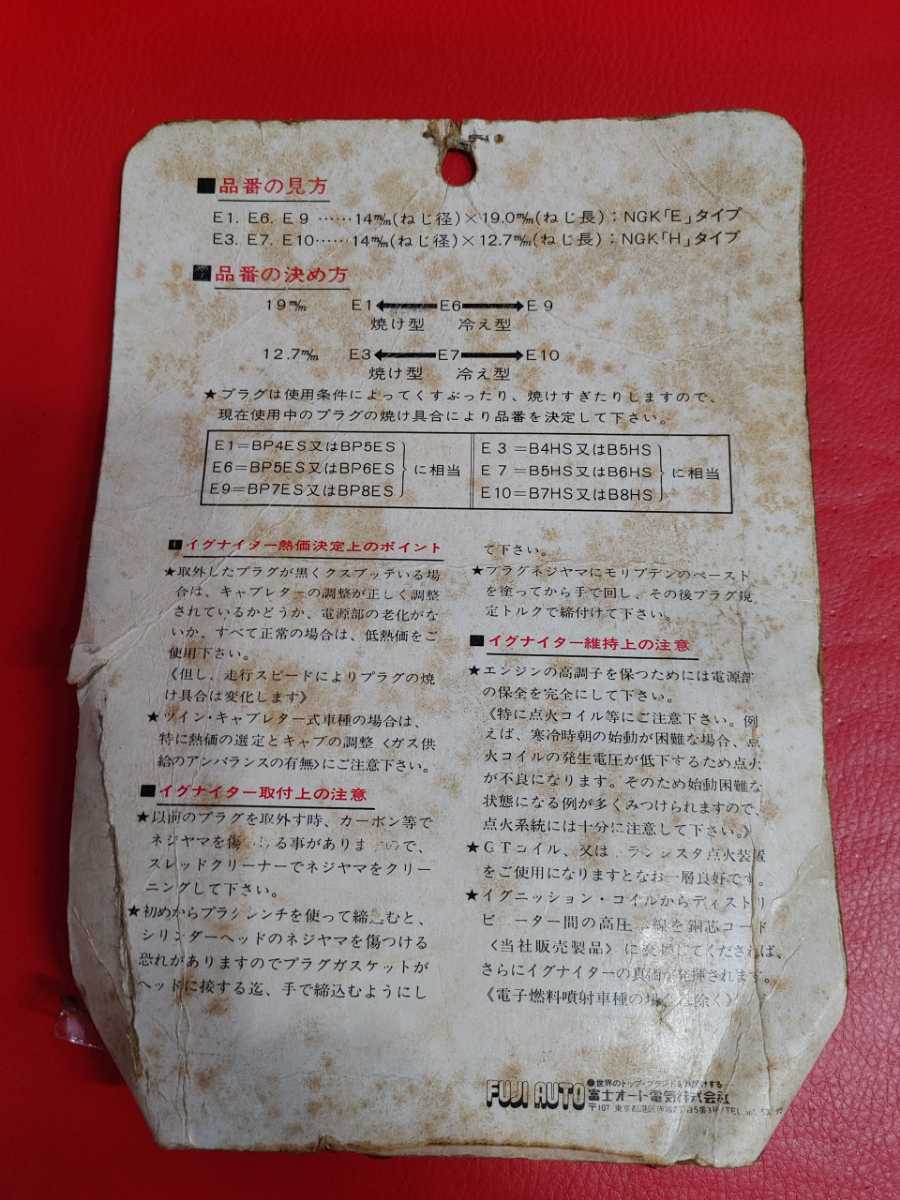 ■品番の見方
E1. E6. E9 ……14m/m(ねじ径)×19.0m/m(ねじ長)；NGK「E」タイプ
E3. E7. E10……14m/m(ねじ径)×12.7m/m(ねじ長)；NGK「H」タイプ
■品番の決め方
19m/m E1←E6→E9
焼け型 冷え型
12.7m/m E3←E7→E10
焼け型 冷え型
★プラグは使用条件によってくすぶったり、焼けすぎたりしますので、
現在使用中のプラグの焼け具合により品番を決定して下さい。
E1=BP4ES又はBP5ES
E6=BP5ES又はBP6ES
E9=BP7ES又はBP8ES
に相当
E3=B4HS又はB5HS
E7=B5HS又はB6HS
E10=B7HS又はB8HS
に相当
イグナイター熱価決定上のポイント
★取外したプラグが黒くクスブッテいる場
合は、キャブレターの調整が正しく調整
されているかどうか、電源部の老化がな
いか、すべて正常の場合は、低熱価をご
使用下さい。
《但し、走行スピードによりプラグの焼
け具合は変化します》
★ツイン・キャブレター式車種の場合は、
特に熱価の選定とキャブの調整〈ガス供
給のアンバランスの有無〉にご注意下さい。
■イグナイター取付上の注意
★以前のプラグを取外す時、カーボン等で
ネジヤマを傷 る事がありま ので、
スレッドクリーナーでネジヤマをクリー
ニングして下さい。
★初めからプラグレンチを使って締込むと、
シリンダーヘッドのネジヤマを傷つける
恐れがありますのでプラグガスケットが
ヘッドに接する迄、手で締込むようにし
て下さい。
★プラグネジヤマにモリブデンのペースト
を塗ってから手で回し、その後プラグ規
定トルクで締付けて下さい。
■イグナイター維持上の注意
★エンジンの高調子を保つためには電源部
の保全を完全にして下さい。
《特に点火コイル等にご注意下さい。例
えば、寒冷時朝の始動が困難な場合、点
火コイルの発生電圧が低下するため点火
が不良になります。そのため始動困難な
状態になる例が多くみつけられますので、
点火系統には十分に注意して下さい。》
★GTコイル、又は ランジスタ点火装置
をご使用になりますとなお一層良好です。
★イグニッション・コイルからディストリ
ビューター間の高圧 線を銅芯コード
〈当社販売製品〉に してくだされば、
さらにイグナイターの真価が発揮されます。
《電子燃料噴射車種の場 除く》
FUJI AUTO
●世界のトップ・ブランドをお届けする
富士オート電気株式会社
〒107 東京都港区赤坂 丁目5番3号/TEL